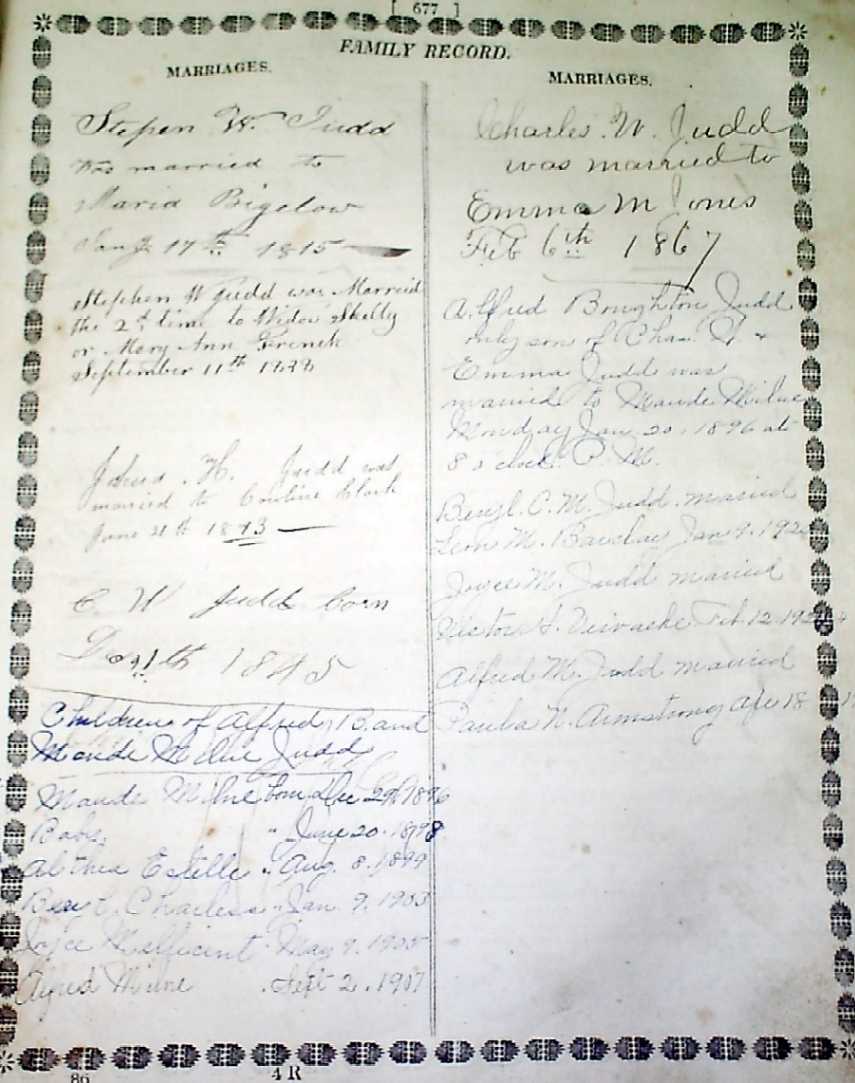 [ 677 ]
FAMILY RECORD.
MARRIAGES.
Stepen W. Judd
was married to
Maria Bigelow
17th 1815
Stephen W Judd was Married
the 2d time to Widow Shelly
or Mary Ann French
September 11th
H. Judd was
married to Clark
June
C W Judd born
1845
Children of Alfred B. and
Maude Milne Judd
Maude Milne born Dec 29th 1896
Baby. " June 20. 1898
Althea Estelle " Aug. 8. 1899
Beryl Charless " Jan. 9. 1903
Joyce Mellicent May 9. 1905
Alfred Milne . Sept 2. 1907
MARRIAGES.
Charles. W. Judd
was married to
Emma M Jones
Feb 6th 1867
Alfred Boughton Judd
only son of Chas. W &
Emma Judd was
married to Maude Milne
Monday Jan. 20. 1896 at
8 o'clock P. M.
Beryl. C. M. Judd. married
Leon M. Barclay Jan 9.
Joyce M. Judd married
A. Feb. 12.
Alfred M. Judd married
N. Armstrong Apr 18
86
4 R